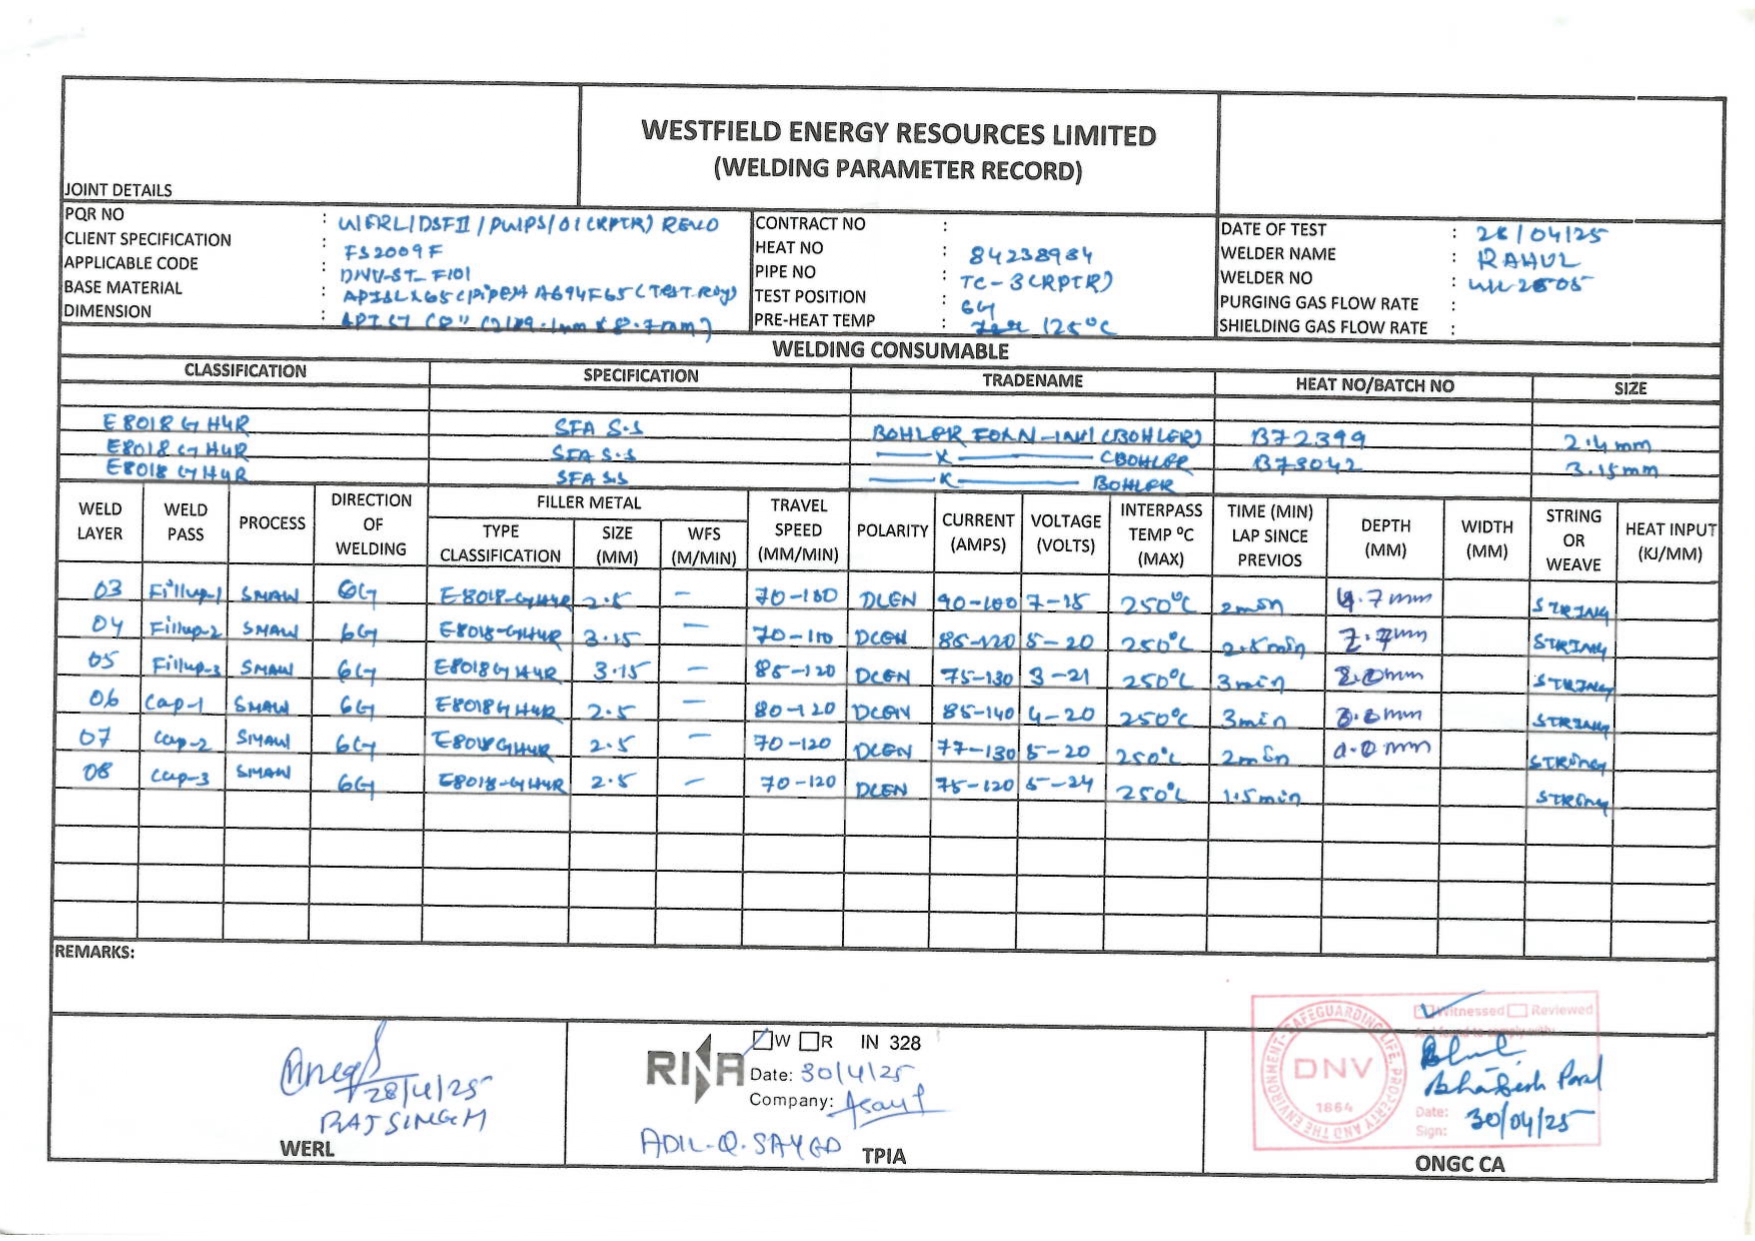 WESTFIELD ENERGY RESOURCES LIMITED
(WELDING PARAMETER RECORD)
JOINT DETAILS
PQR NO : WERL/DSFII/PWPS/01(RPTR) REV.0
CLIENT SPECIFICATION : FS2009F
APPLICABLE CODE : DNV-ST-F101
BASE MATERIAL : API5LX65(PIPE)
DIMENSION :
CONTRACT NO :
HEAT NO : 84238984
PIPE NO : TC-3(RPTR)
TEST POSITION : 6G
PRE-HEAT TEMP : 125°C
DATE OF TEST : 28/04/25
WELDER NAME : RAHUL
WELDER NO :
PURGING GAS FLOW RATE :
SHIELDING GAS FLOW RATE :
WELDING CONSUMABLE
CLASSIFICATION SPECIFICATION TRADENAME HEAT NO/BATCH NO SIZE
E8018 G H4R SFA 5.5 BOHLER (BOHLER) B72399 2.4mm
E8018 G H4R SFA 5.5 —x— (BOHLER B73042 3.15mm
E8018 G H4R SFA 5.5 —x— BOHLER
WELD LAYER WELD PASS PROCESS DIRECTION OF WELDING FILLER METAL TRAVEL SPEED (MM/MIN) POLARITY CURRENT (AMPS) VOLTAGE (VOLTS) INTERPASS TEMP ºC (MAX) TIME (MIN) LAP SINCE PREVIOS DEPTH (MM) WIDTH (MM) STRING OR WEAVE HEAT INPUT (KJ/MM)
TYPE CLASSIFICATION SIZE (MM) WFS (M/MIN)
03 Fillup-1 SMAW 6G E-8018-GH4R 2.5 – 70-100 DCEN 90-100 7-18 250°C 2min 4.7mm STRING
04 Fillup-2 SMAW 6G E8018-GH4R 3.15 – 70-110 DCEN 85-120 5-20 250°C 2.5min 7.7mm STRING
05 Fillup-3 SMAW 6G E8018GH4R 3.15 – 85-120 DCEN 75-130 3-21 250°C 3min STRING
06 Cap-1 SMAW 6G E8018GH4R 2.5 – 80-120 DCEN 85-140 4-20 250°C 3min STRING
07 Cap-2 SMAW 6G E8018GH4R 2.5 – 70-120 DCEN 77-130 5-20 250°C 2min STRING
08 Cap-3 SMAW 6G E8018-GH4R 2.5 – 70-120 DCEN 75-120 5-24 250°C 1.5min STRING
REMARKS:
28/4/25
RAJ SINGH
WERL
RINA
W R IN 328
Date: 30/4/25
Company:
ADIL.Q.SAYED
TPIA
Witnessed Reviewed
SAFEGUARDING LIFE, PROPERTY AND THE ENVIRONMENT
DNV
1864
Date: 30/04/25
Sign:
ONGC CA